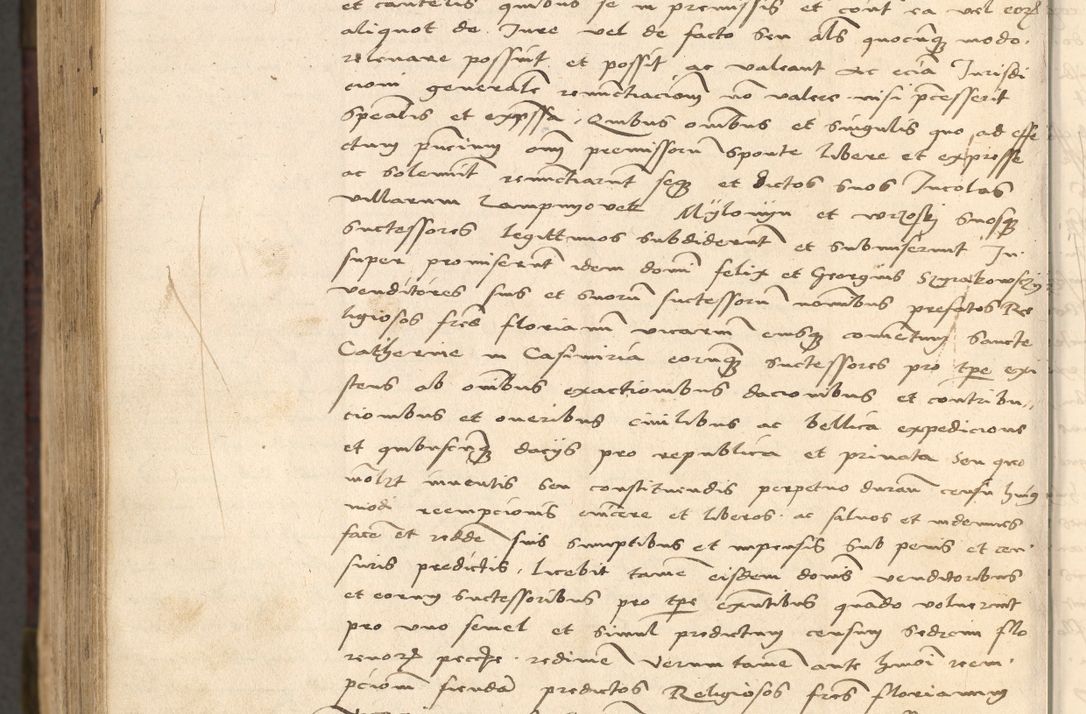 et cautelis quibus se in premissis et cont ea vel eorum
aliquot de Jure vel de facto seu als quocunq modo
relevare possint et possit ac valeant Ac ecia Jurisdi
cioni generale renunctiacionem non valere nisi pcesserit
spealis et expssa, Quibus omibus et singulis quo ad effe
ctum pncium omi premissorum sponte libere et expresse
ac solemnit renunctiarunt seq et dictos suos Incolas
villarum Mylowyn et Wrzosky suosq
successores legittimos subdiderunt et submiserunt In
super promiserunt idem domi felix et Georgius Szyrakowsczy
venditores suis et suorum successorum nominibus prefatos Re
ligiosos fres florianum vicarium eiusq conventum sancte
Catherine in Casimiria eorumq successores pro tpe exi
stens ab omibus exactionibus dacionibus et contribu
cionibus et oneribus civilibus ac bellica expedicione
et quibuscunq dacijs pro republica et privata seu quo
molzt inventis seu constituendis perpetuo duran censu huius
modi reempcionis eincere et liberos ac salvos et indemnes
face et redde suis sumptibus et impensis sub penis et cen
suris predictis, licebit tame eisdem donis venditoribus
et eorum successoribus pro tpe exntibus quando voluerint
pro uno semel et simul predictum censum sedecim flo
renorum peccie redime Verum tame ante hmoi reem
pcionem fienda predictos Religiosos fres florianum